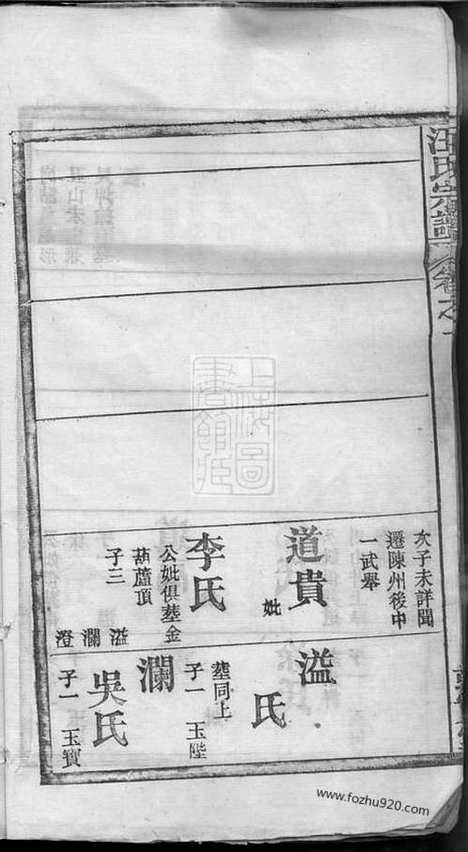 汪氏宗譜
卷之
次子未詳聞
遷陳州後中
一武舉
道貴
妣
李氏
公妣俱塟金
葫蘆頂
子三
溢
瀾
澄
溢
氏
塟同上
子一 玉陞
瀾
吳氏
子一 玉寶
上海圖書館藏
www.fozhu920.com